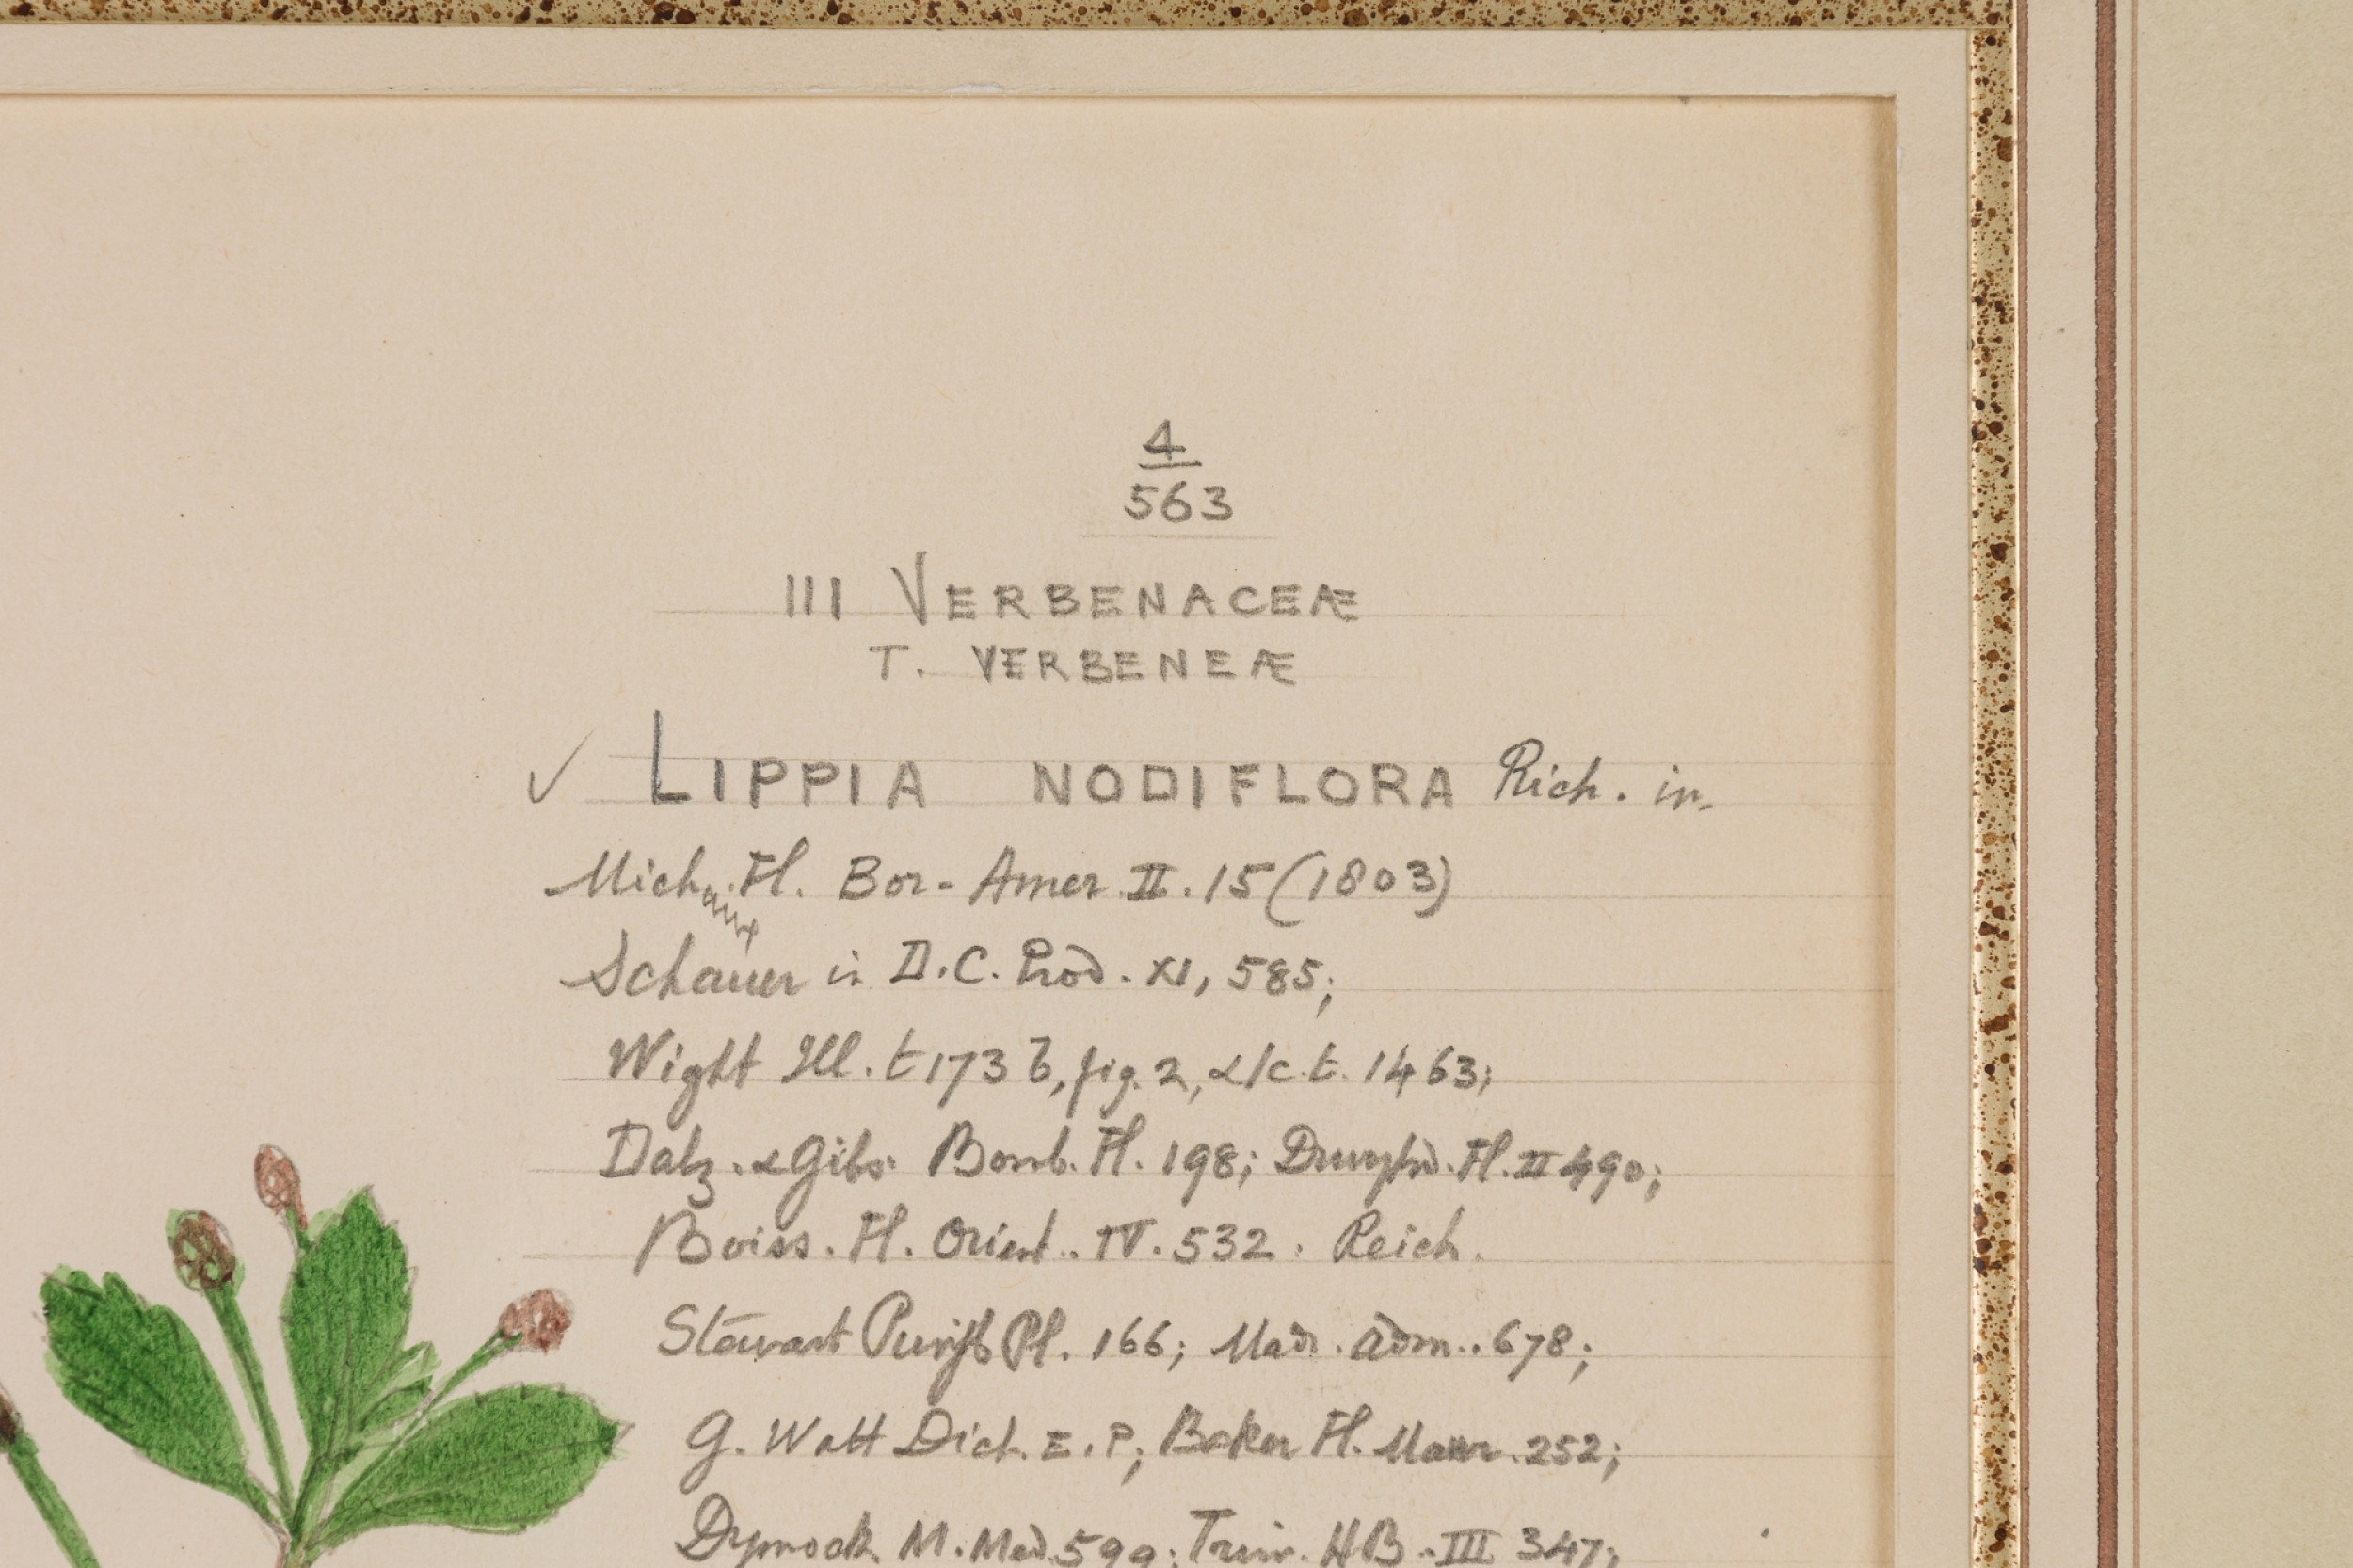 4
563
III VERBENACEÆ
T. VERBENEÆ
✓ LIPPIA NODIFLORA Rich. in
Michaux Fl. Bor-Amer. II. 15 (1803)
Schauer in D.C. Prod. XI, 585;
Wight Ill. t 173 b, fig. 2, & Ic. t. 1463;
Dalz. & Gibs. Bomb. Fl. 198; Fl. II 490;
Boiss. Fl. Orient. IV. 532. Reich.
Stewart Punjb Pl. 166; Madr. Adm.. 678;
G. Watt Dict. E. P; Baker Fl. Maur. 252;
Dymock M. Med. 599; Trim. HB. III 347;